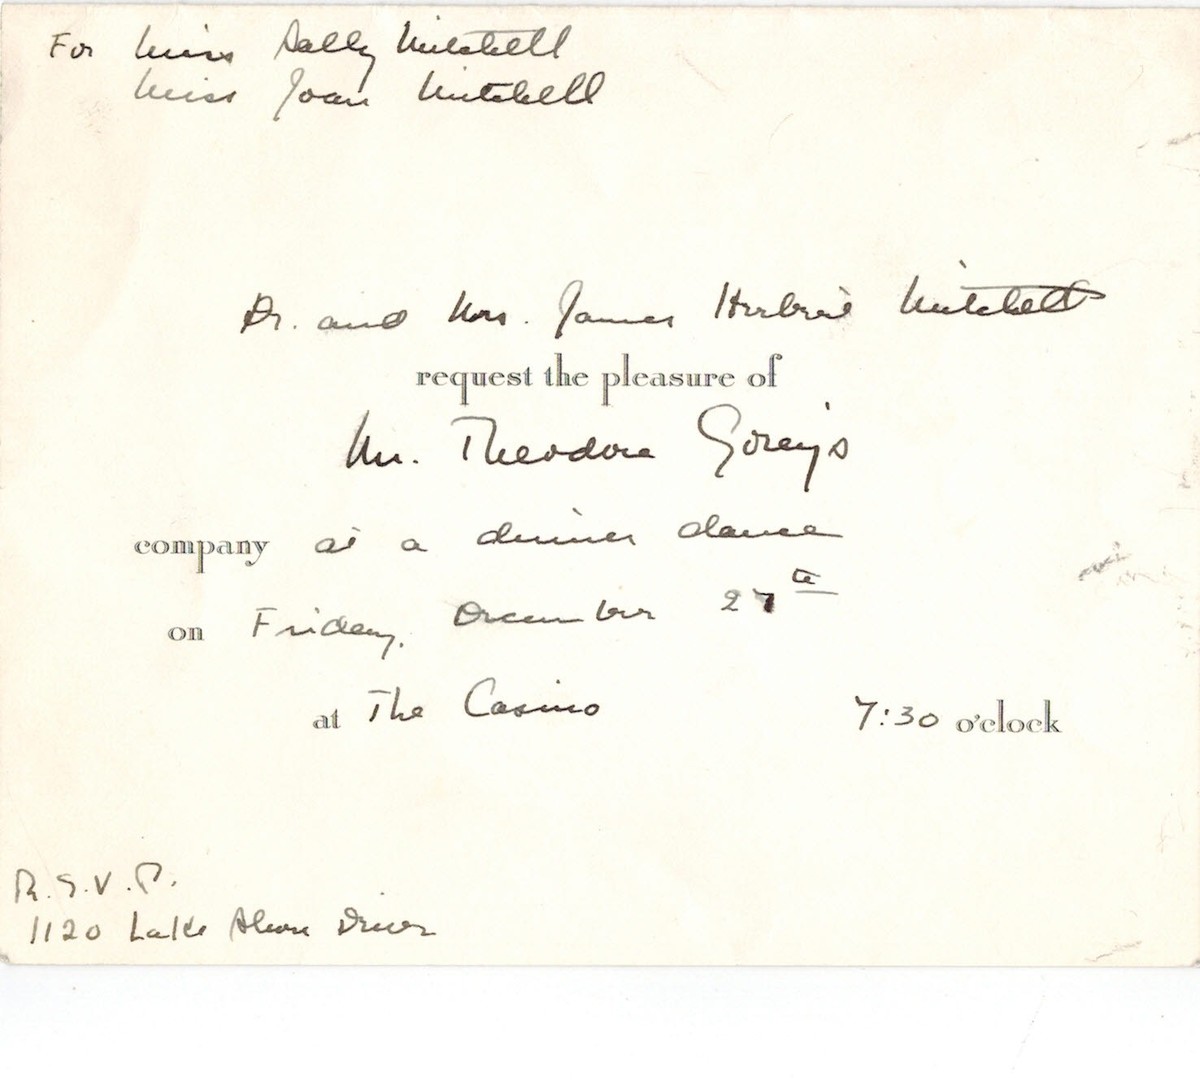 For Miss Sally Mitchell
Miss Joan Mitchell
Dr. and Mrs. James Herbert Mitchell
request the pleasure of
Mr. Theodore Gorey's
company at a dinner dance
on Friday, December 27th
at The Casino 7:30 o'clock
R.S.V.P.
1120 Lake Shore Drive